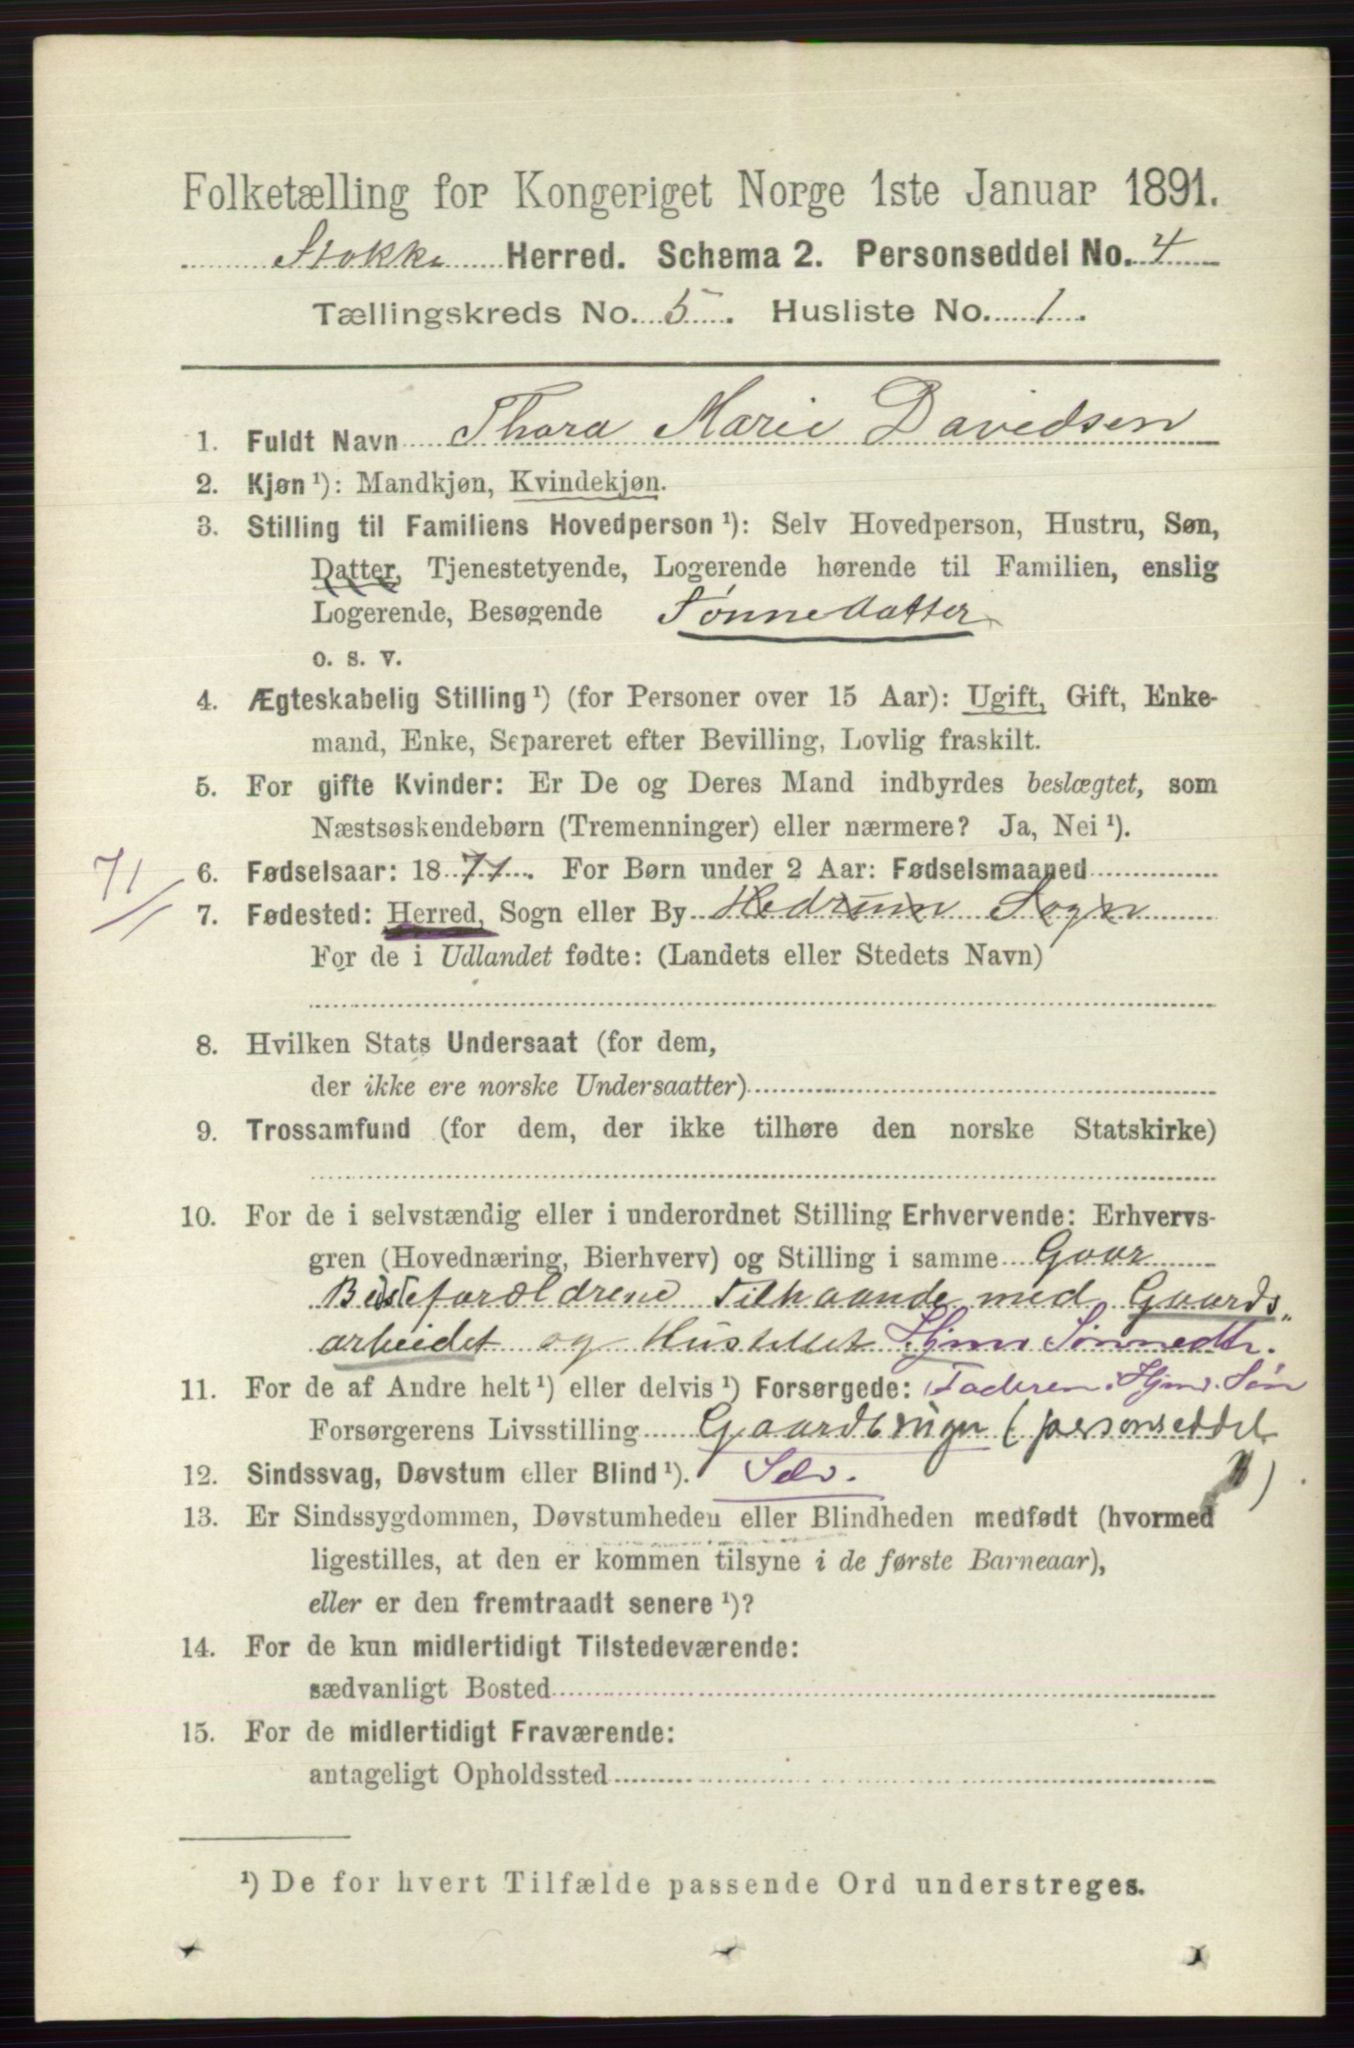 Folketælling for Kongeriget Norge 1ste Januar 1891.
Stokke Herred. Schema 2. Personseddel No. 4
Tællingskreds No. 5. Husliste No. 1.
1. Fuldt Navn Thora Marie Davidsen
2. Kjøn ¹): Mandkjøn, Kvindekjøn.
3. Stilling til Familiens Hovedperson ¹): Selv Hovedperson, Hustru, Søn,
Datter, Tjenestetyende, Logerende hørende til Familien, enslig
Logerende, Besøgende Sønnedatter
o. s. v.
4. Ægteskabelig Stilling ¹) (for Personer over 15 Aar): Ugift, Gift, Enke-
mand, Enke, Separeret efter Bevilling, Lovlig fraskilt.
5. For gifte Kvinder: Er De og Deres Mand indbyrdes beslægtet, som
Næstsøskendebørn (Tremenninger) eller nærmere? Ja, Nei ¹).
71
6. Fødselsaar: 1871. For Børn under 2 Aar: Fødselsmaaned
7. Fødested: Herred, Sogn eller By Hedrum Sogn
For de i Udlandet fødte: (Landets eller Stedets Navn)
8. Hvilken Stats Undersaat (for dem,
der ikke ere norske Undersaatter)
9. Trossamfund (for dem, der ikke tilhøre den norske Statskirke)
10. For de i selvstændig eller i underordnet Stilling Erhvervende: Erhvervs-
gren (Hovednæring, Bierhverv) og Stilling i samme Gaar
Bedsteforældrene Tilhaande med Gaards„
arbeidet og Husstellet Hjmv Sønnedtr.
11. For de af Andre helt ¹) eller delvis ¹) Forsørgede: Faderen. Hjmv. Søn
Forsørgerens Livsstilling Gaardbruger (personseddel
12. Sindssvag, Døvstum eller Blind ¹). Selv. )
13. Er Sindssygdommen, Døvstumheden eller Blindheden medfødt (hvormed
ligestilles, at den er kommen tilsyne i de første Barneaar),
eller er den fremtraadt senere ¹)?
14. For de kun midlertidigt Tilstedeværende:
sædvanligt Bosted
15. For de midlertidigt Fraværende:
antageligt Opholdssted
¹) De for hvert Tilfælde passende Ord understreges.